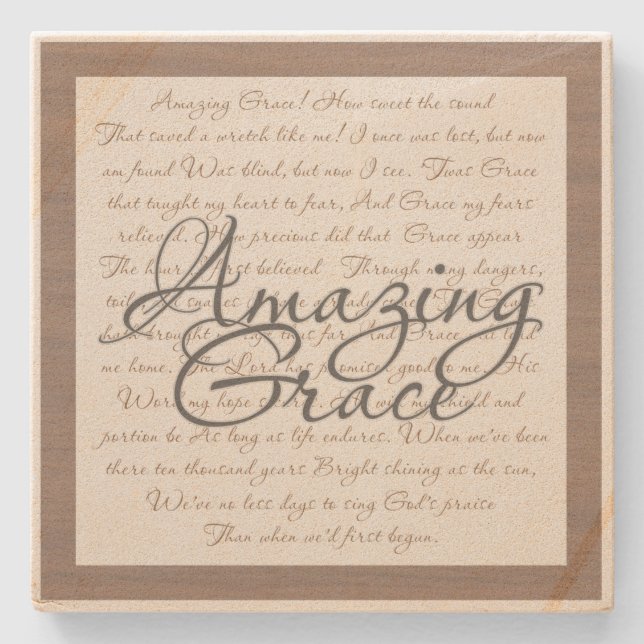 Amazing Grace! How sweet the sound
That saved a wretch like me! I once was lost, but now
am found Was blind, but now I see. 'Twas Grace
that taught my heart to fear, And Grace my fears
relieved. How precious did that Grace appear
The hour I first believed Through many dangers,
toils and snares
Amazing
hath brought me safe thus far And Grace
me home. The Lord has promised good to me. His
Grace
Word my hope my shield and
portion be As long as life endures. When we've been
there ten thousand years Bright shining as the sun,
We've no less days to sing God's praise
Than when we'd first begun.